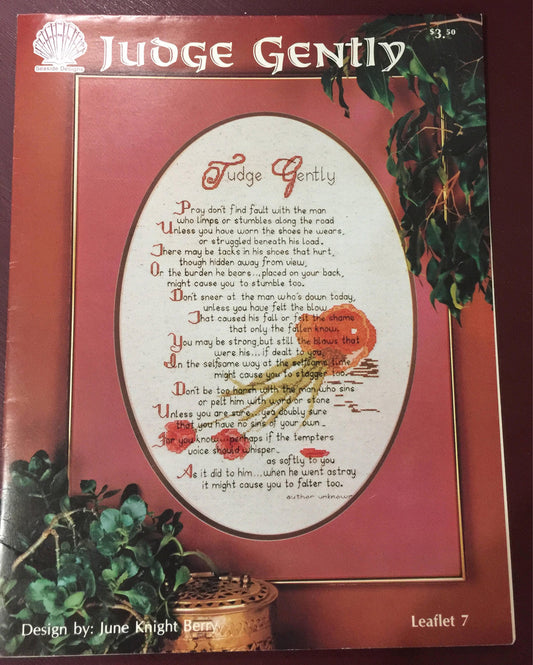 Seaside Designs
JUDGE GENTLY
$3.50
Judge Gently
Pray don't find fault with the man
who limps or stumbles along the road
Unless you have worn the shoes he wears,
or struggled beneath his load.
There may be tacks in his shoes that hurt,
though hidden away from view,
Or the burden he bears...placed on your back,
might cause you to stumble too.
Don't sneer at the man who's down today,
unless you have felt the blow
That caused his fall or felt the shame
that only the fallen know.
You may be strong, but still the blows that
were his...if dealt to you,
In the selfsame way at the selfsame time
might cause you to stagger too.
Don't be too harsh with the man who sins
or pelt him with word or stone
Unless you are sure...yea doubly sure
that you have no sins of your own..
For you know...perhaps if the tempters
voice should whisper...
as softly to you
As it did to him...when he went astray
it might cause you to falter too.
author unknown
Design by: June Knight Berry
Leaflet 7